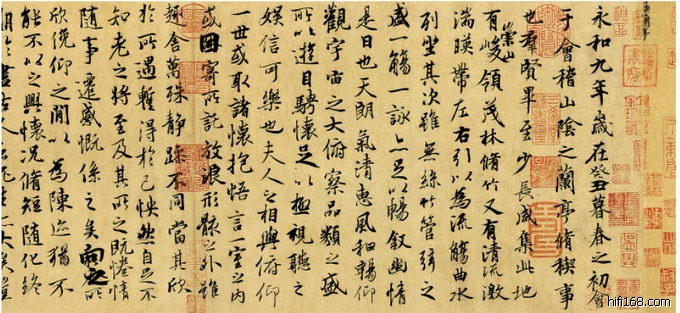 永和九年歲在癸丑暮春之初會
于會稽山陰之蘭亭脩禊事
也羣賢畢至少長咸集此地
有崇山峻領茂林脩竹又有清流激
湍暎帶左右引以為流觴曲水
列坐其次雖無絲竹管弦之
盛一觴一詠亦足以暢敘幽情
是日也天朗氣清惠風和暢仰
觀宇宙之大俯察品類之盛
所以遊目騁懷足以極視聽之
娛信可樂也夫人之相與俯仰
一世或取諸懷抱悟言一室之內
或因寄所託放浪形骸之外雖
趣舍萬殊靜躁不同當其欣
於所遇暫得於己怏然自足不
知老之將至及其所之既惓情
隨事遷感慨係之矣向之所
欣俛仰之閒以為陳迹猶不
能不以之興懷況脩短隨化終
期於盡古人云死生亦大矣豈
hifi168.com